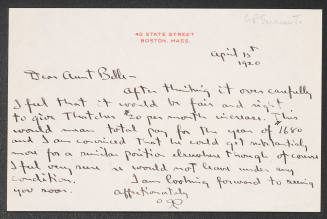 40 STATE STREET
BOSTON, MASS.
April 15th
1920
Dear Aunt Belle—
After thinking it over carefully
I feel that it would be fair and right
to give Thatcher $20 per month increase. This
would mean total pay for the year of $1680
and I am convinced that he could get substantially
more for a similar position elsewhere though of course
I feel very sure he would not leave under any
condition. I am looking forward to seeing
you soon.
affectionately